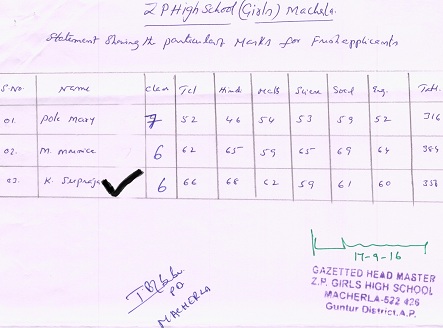 Z P High School (Girls) Macherla.
Statement Showing the particulars Marks for Fresh applicants
S.No. Name Class Tel Hindi Maths Science Social Eng. Total
01. Pole Mary 7 52 46 54 53 59 52 316
02. M. 6 62 65 59 65 69 64 384
03. K. Supraja 6 66 68 62 59 61 60
17-9-16
PO
MACHERLA
GAZETTED HEAD MASTER
Z.P. GIRLS HIGH SCHOOL
MACHERLA-522 426
Guntur District, A.P.